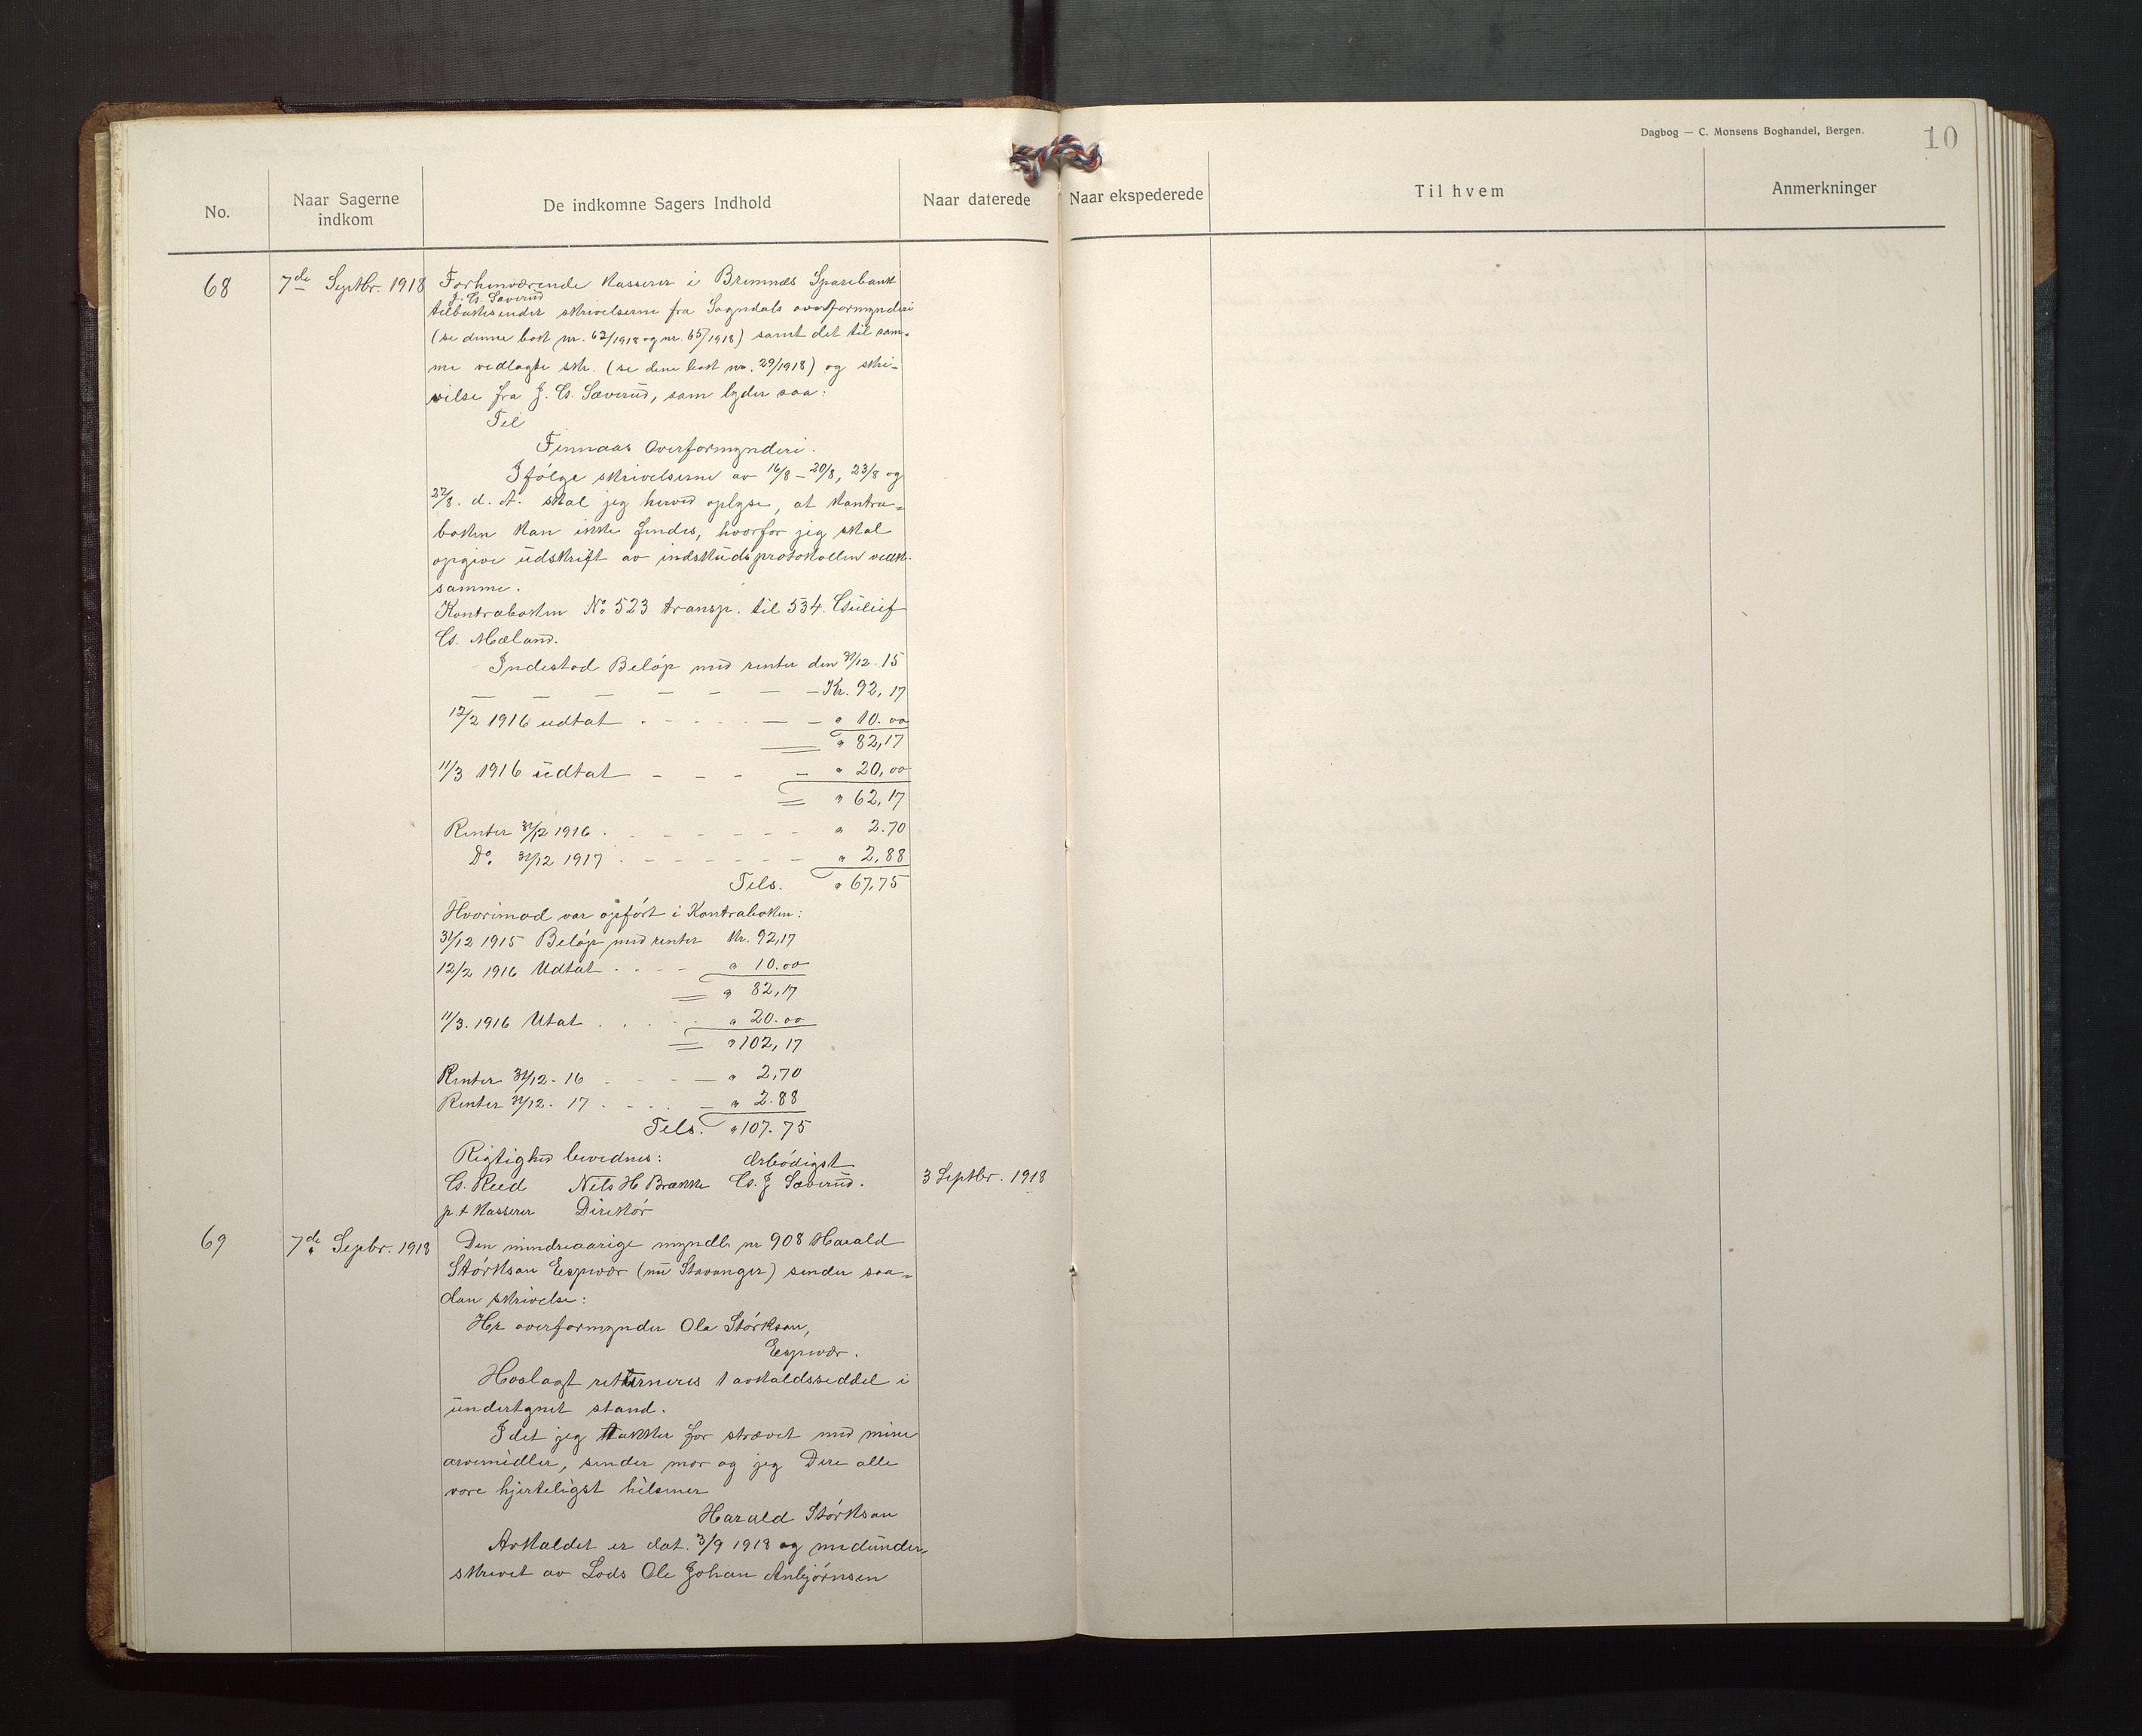 Dagbog — C. Monsens Boghandel, Bergen.
10
No.
Naar Sagerne indkom
De indkomne Sagers Indhold
Naar daterede
Naar ekspederede
Til hvem
Anmerkninger
68
7de Septbr. 1918
Forhenværende kasserer i Bremnes Sparebank
J. G. Sæverud
tilbakesender skrivelserne fra Sogndals overformynderi
(se denne bok nr. 62/1918 og nr. 65/1918) samt det til sam-
me vedlagte skr. (se dene bok no. 29/1918) og skri-
velse fra J. G. Sæverud, som lyder saa:
Til
Finnaas Overformynderi.
Ifølge skrivelserne av 16/8 – 20/8, 23/8 og
27/8. d. A. skal jeg herved oplyse, at kontra-
boken kan ikke findes, hvorfor jeg skal
opgive udskrift av indskudsprotokollen vedk.
samme.
Kontraboken No 523 transp. til 534. Guleif
G. Mæland.
Indestod Beløp med renter den 31/12. 15
— — — — — — — Kr. 92,17
12/2 1916 udtat . - - - - — — " 10.00
" 82,17
11/3 1916 udtat — - - — " 20,00
" 62,17
Renter 31/12 1916 . - - - - - - " 2.70
Do. 31/12 1917 . - - - - - — " 2,88
Tils. " 67,75
Hvorimod var opført i Kontraboken:
31/12 1915 Beløp med renter Kr. 92,17
12/2 1916 Udtat . . - - " 10.00
" 82,17
11/3. 1916 Utat . . . . . " 20.00
" 102,17
Renter 31/12 - 16 . - - — " 2,70
Renter 31/12 - 17 . - . . — " 2.88
Tils. " 107.75
Rigtighed bevidnes: Ærbødigst
G. Reed Nils H Brække G. J Sæverud.
3 Septbr. 1918
p.t kasserer Direktør
69
7de Sepbr. 1918
Den mindreaarige myndl. nr 908 Harald
Størksen Espevær (nu Stavanger) sender saa-
dan skrivelse:
Hr overformynder Ola Størksen,
Espevær.
Hoslagt returneres 1 avkaldsseddel i
undertgnet stand.
Idet jeg takker for strævet med mine
arvemidler, sender mor og jeg Dere alle
vore hjerteligst hilsener
Harald Størksen
Avkaldet er dat. 3/9 1918 og medunder-
skrevet av Lods Ole Johan Anbjørnsen